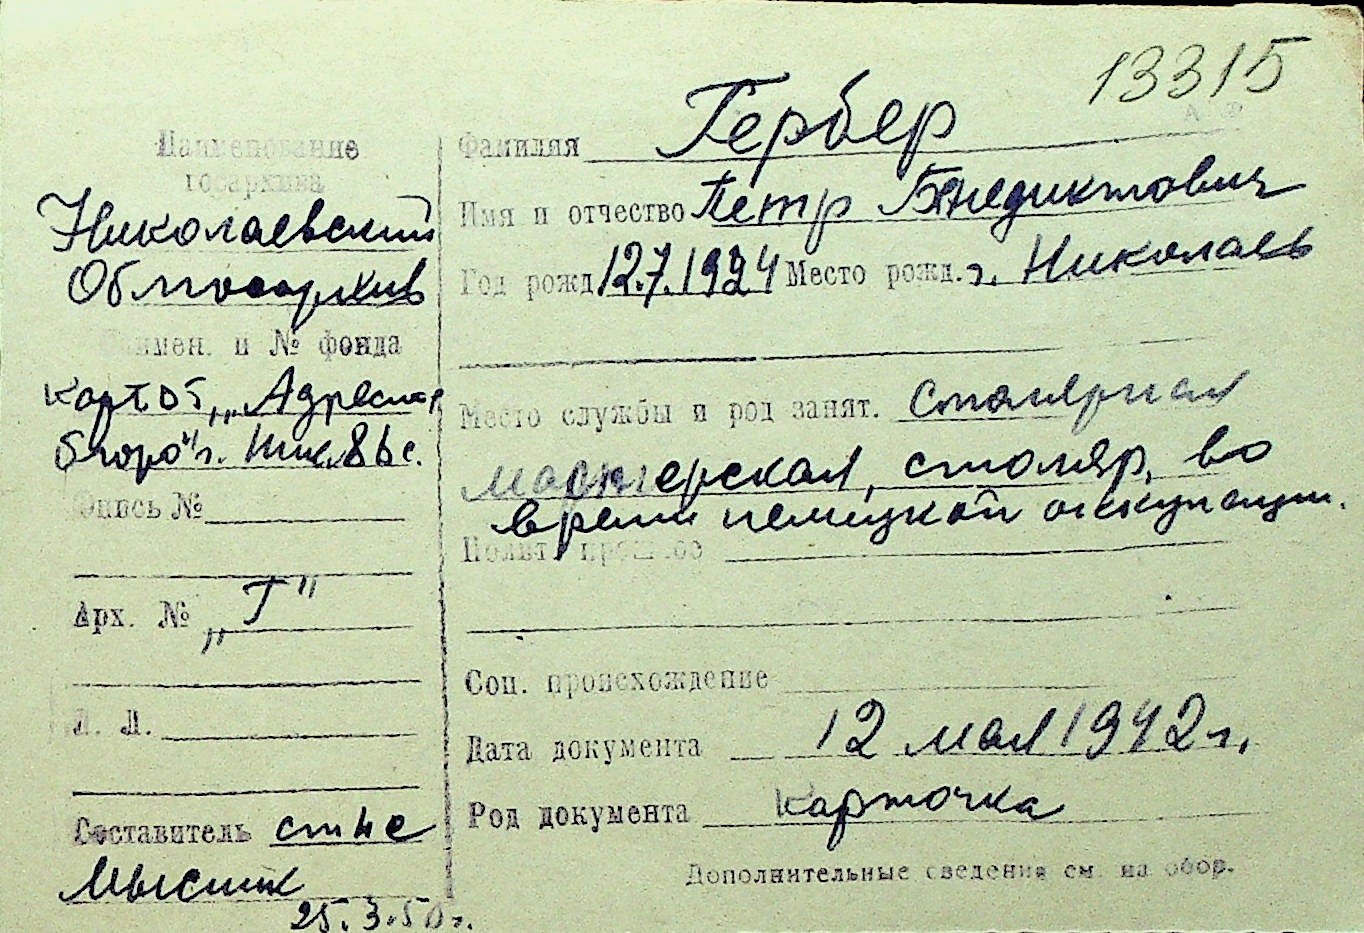 13315
Наименование
госархива
Николаевский
Облгосархив
Наимен. и № фонда
карт. об „Адресное
бюро" г.
Опись №
Арх. № „Г"
Л. Л.
Составитель ст н с
Мысик
25.3.50 г.
Фамилия Гербер
Имя и отчество Петр Бенедиктович
Год рожд 12.7.1924 Место рожд. г. Николаевъ
Место службы и род занят. столярная
мастерская, столяр, во
время немецкой оккупации.
Полит. прошлое
Соц. происхождение
Дата документа 12 мая 1942 г.
Род документа карточка
Дополнительные сведения см. на обор.